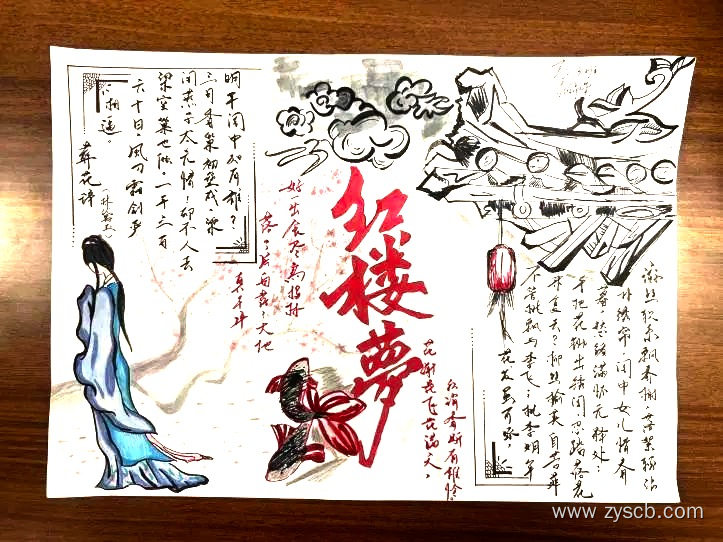 明年闺中知有谁？
三月香巢初垒成，梁
间燕子太无情！却不人去
梁空巢也倾。一年三百
六十日，风刀霜剑严
相逼。
葬花诗
（林黛玉）
好一出食尽鸟投林
落了片白茫茫大地
真干净
红楼梦
红消香断有谁怜
花谢花飞花满天，
游丝软系飘春榭，落絮轻沾
扑绣帘。闺中女儿惜春
暮，愁绪满怀无释处；
手把花锄出绣闺，忍踏落花
来复去？柳丝榆荚自芳菲
不管桃飘与李飞；桃李明年
花发虽可啄，
www.zyscb.com